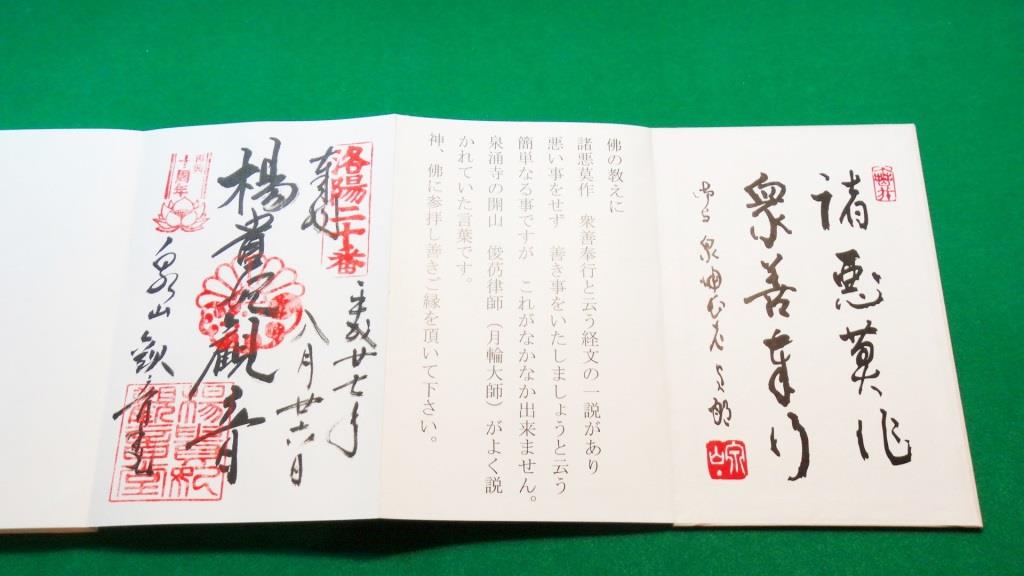 諸悪莫作
衆善奉行
佛の教えに
諸悪莫作 衆善奉行と云う経文の一説があり
悪い事をせず 善き事をいたしましょうと云う
簡単なる事ですが これがなかなか出来ません。
泉涌寺の開山 俊芿律師（月輪大師）がよく説
かれていた言葉です。
神、佛に参拝し善きご縁を頂いて下さい。
洛陽二十番
奉拝
平成廿七年
八月廿六日
楊貴妃観音
十周年
泉山
楊貴妃
観音堂